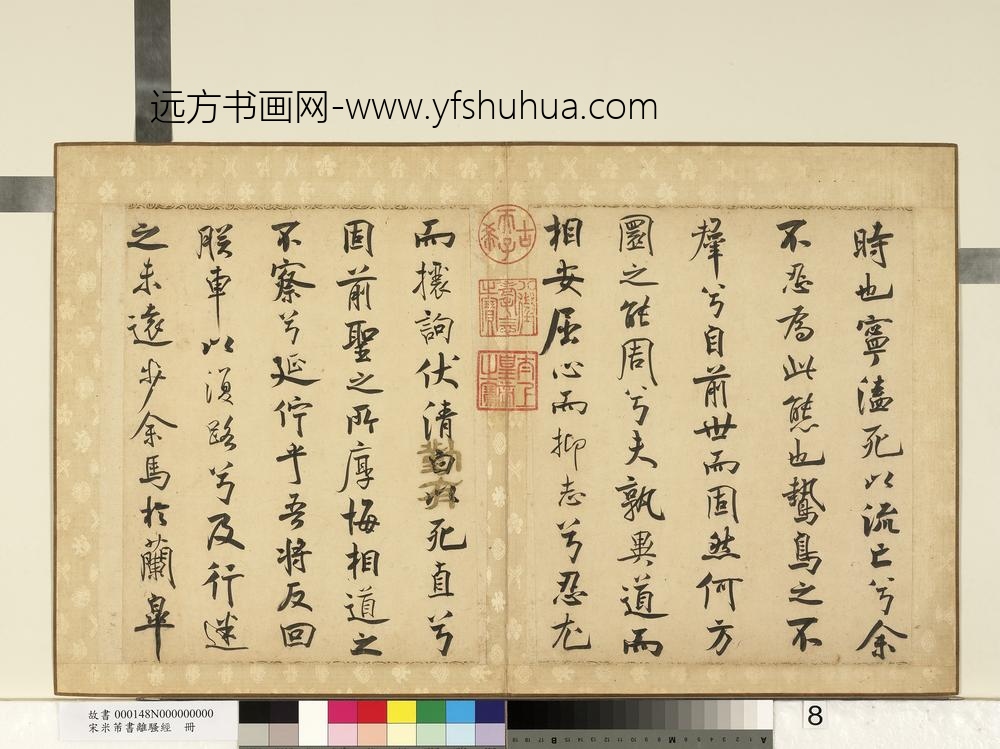 远方书画网-www.yfshuhua.com
時也寧溘死以流亡兮余
不忍為此態也鷙鳥之不
羣兮自前世而固然何方
圜之能周兮夫孰異道而
相安屈心而抑志兮忍尤
古希天子
太上皇帝之寶
而攘詬伏清白以死直兮
固前聖之所厚悔相道之
不察兮延佇乎吾將反回
朕車以復路兮及行迷
之未遠步余馬於蘭皋
故書 000148N000000000
宋米芾書離騷經 冊
8